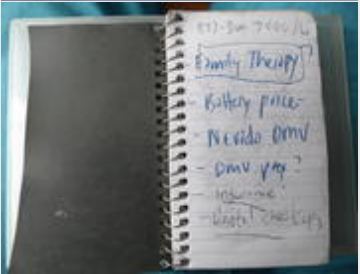 Family Therapy?
- Battery price
- DMV
- DMV ?
- insurance
- Dental checkups